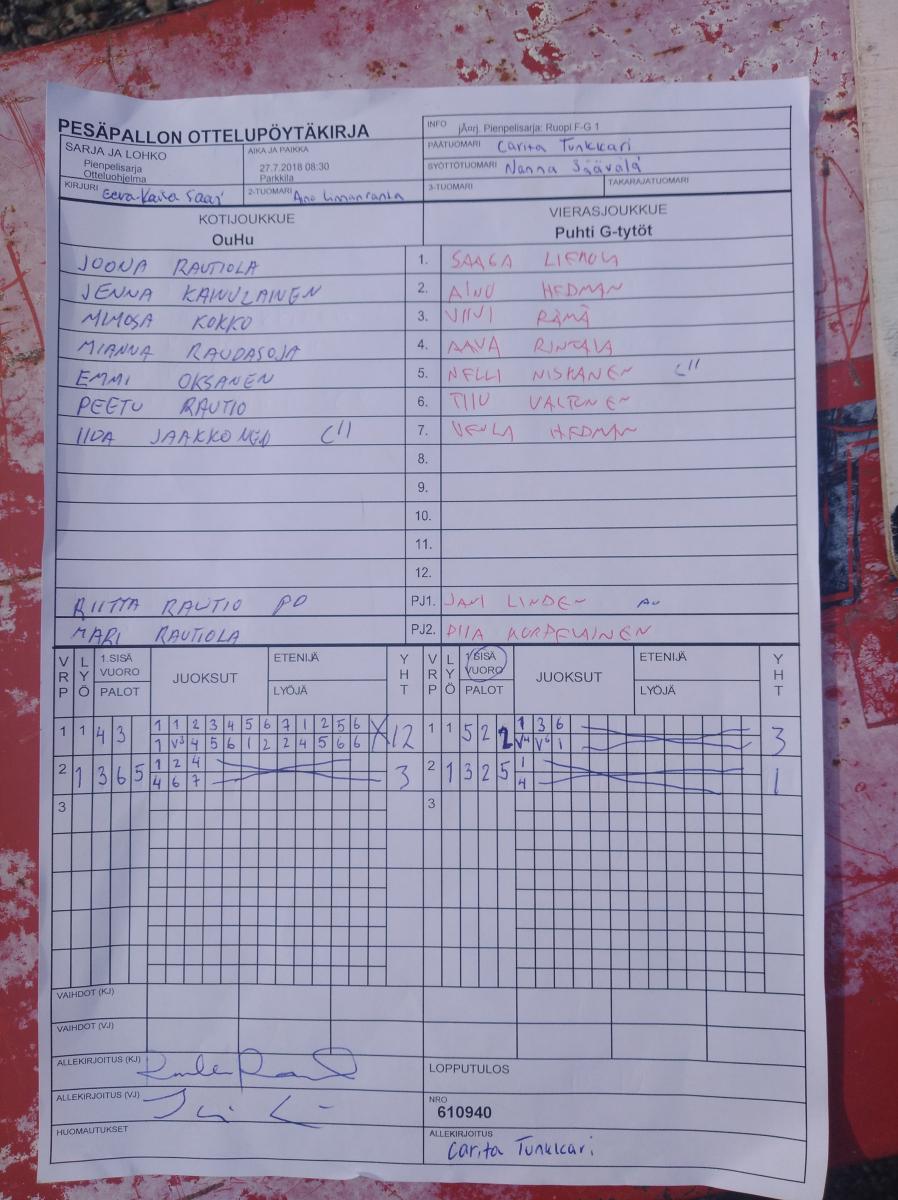 PESÄPALLON OTTELUPÖYTÄKIRJA
INFO jÄorj. Pienpelisarja: Ruopi F-G 1
PÄÄTUOMARI Carita Tunkkari
SARJA JA LOHKO
Pienpelisarja
Otteluohjelma
AIKA JA PAIKKA
27.7.2018 08:30
Parkkila
SYÖTTÖTUOMARI Nanna Säävälä
KIRJURI Eeva-Kaisa
2-TUOMARI Aino Linnanranta
3-TUOMARI
TAKARAJATUOMARI
KOTIJOUKKUE
OuHu
VIERASJOUKKUE
Puhti G-tytöt
JOONA RAUTIOLA 1. SAAGA
JENNA KAINULAINEN 2. AINO HEDMAN
MIMOSA KOKKO 3. VIIVI RÄMÄ
MIANNA RAUDASOJA 4. AAVA RINTALA
EMMI OKSANEN 5. NELLI NISKANEN L"
PEETU RAUTIO 6. TIIU VALTONEN
IIDA JAAKKONEN L" 7. VENLA HEDMAN
8.
9.
10.
11.
12.
RIITTA RAUTIO PJ1. JANI LINDEN
MARI RAUTIOLA PJ2. PIIA KORPELAINEN
VRP LYÖ 1.SISÄ VUORO PALOT JUOKSUT ETENIJÄ LYÖJÄ YHT VRP LYÖ 1.SISÄ VUORO PALOT JUOKSUT ETENIJÄ LYÖJÄ YHT
1 1 4 3 1 1 2 3 4 5 6 7 1 2 5 6 X 12 1 1 5 2 2 1 3 6 3
1 V3 4 5 6 1 2 2 4 5 6 6 V4 V6 1
2 1 3 6 5 1 2 4 3 2 1 3 2 5 1 1
4 6 7 4
3 3
VAIHDOT (KJ)
VAIHDOT (VJ)
ALLEKIRJOITUS (KJ)
LOPPUTULOS
ALLEKIRJOITUS (VJ)
NRO
610940
HUOMAUTUKSET
ALLEKIRJOITUS
Carita Tunkkari